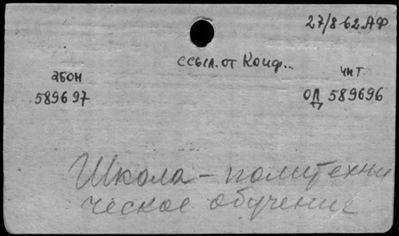 27/8-62.АФ
ссыл. от Конф..
абон чит
589697 ОД 589696
Школа - политехни
ческое обучение